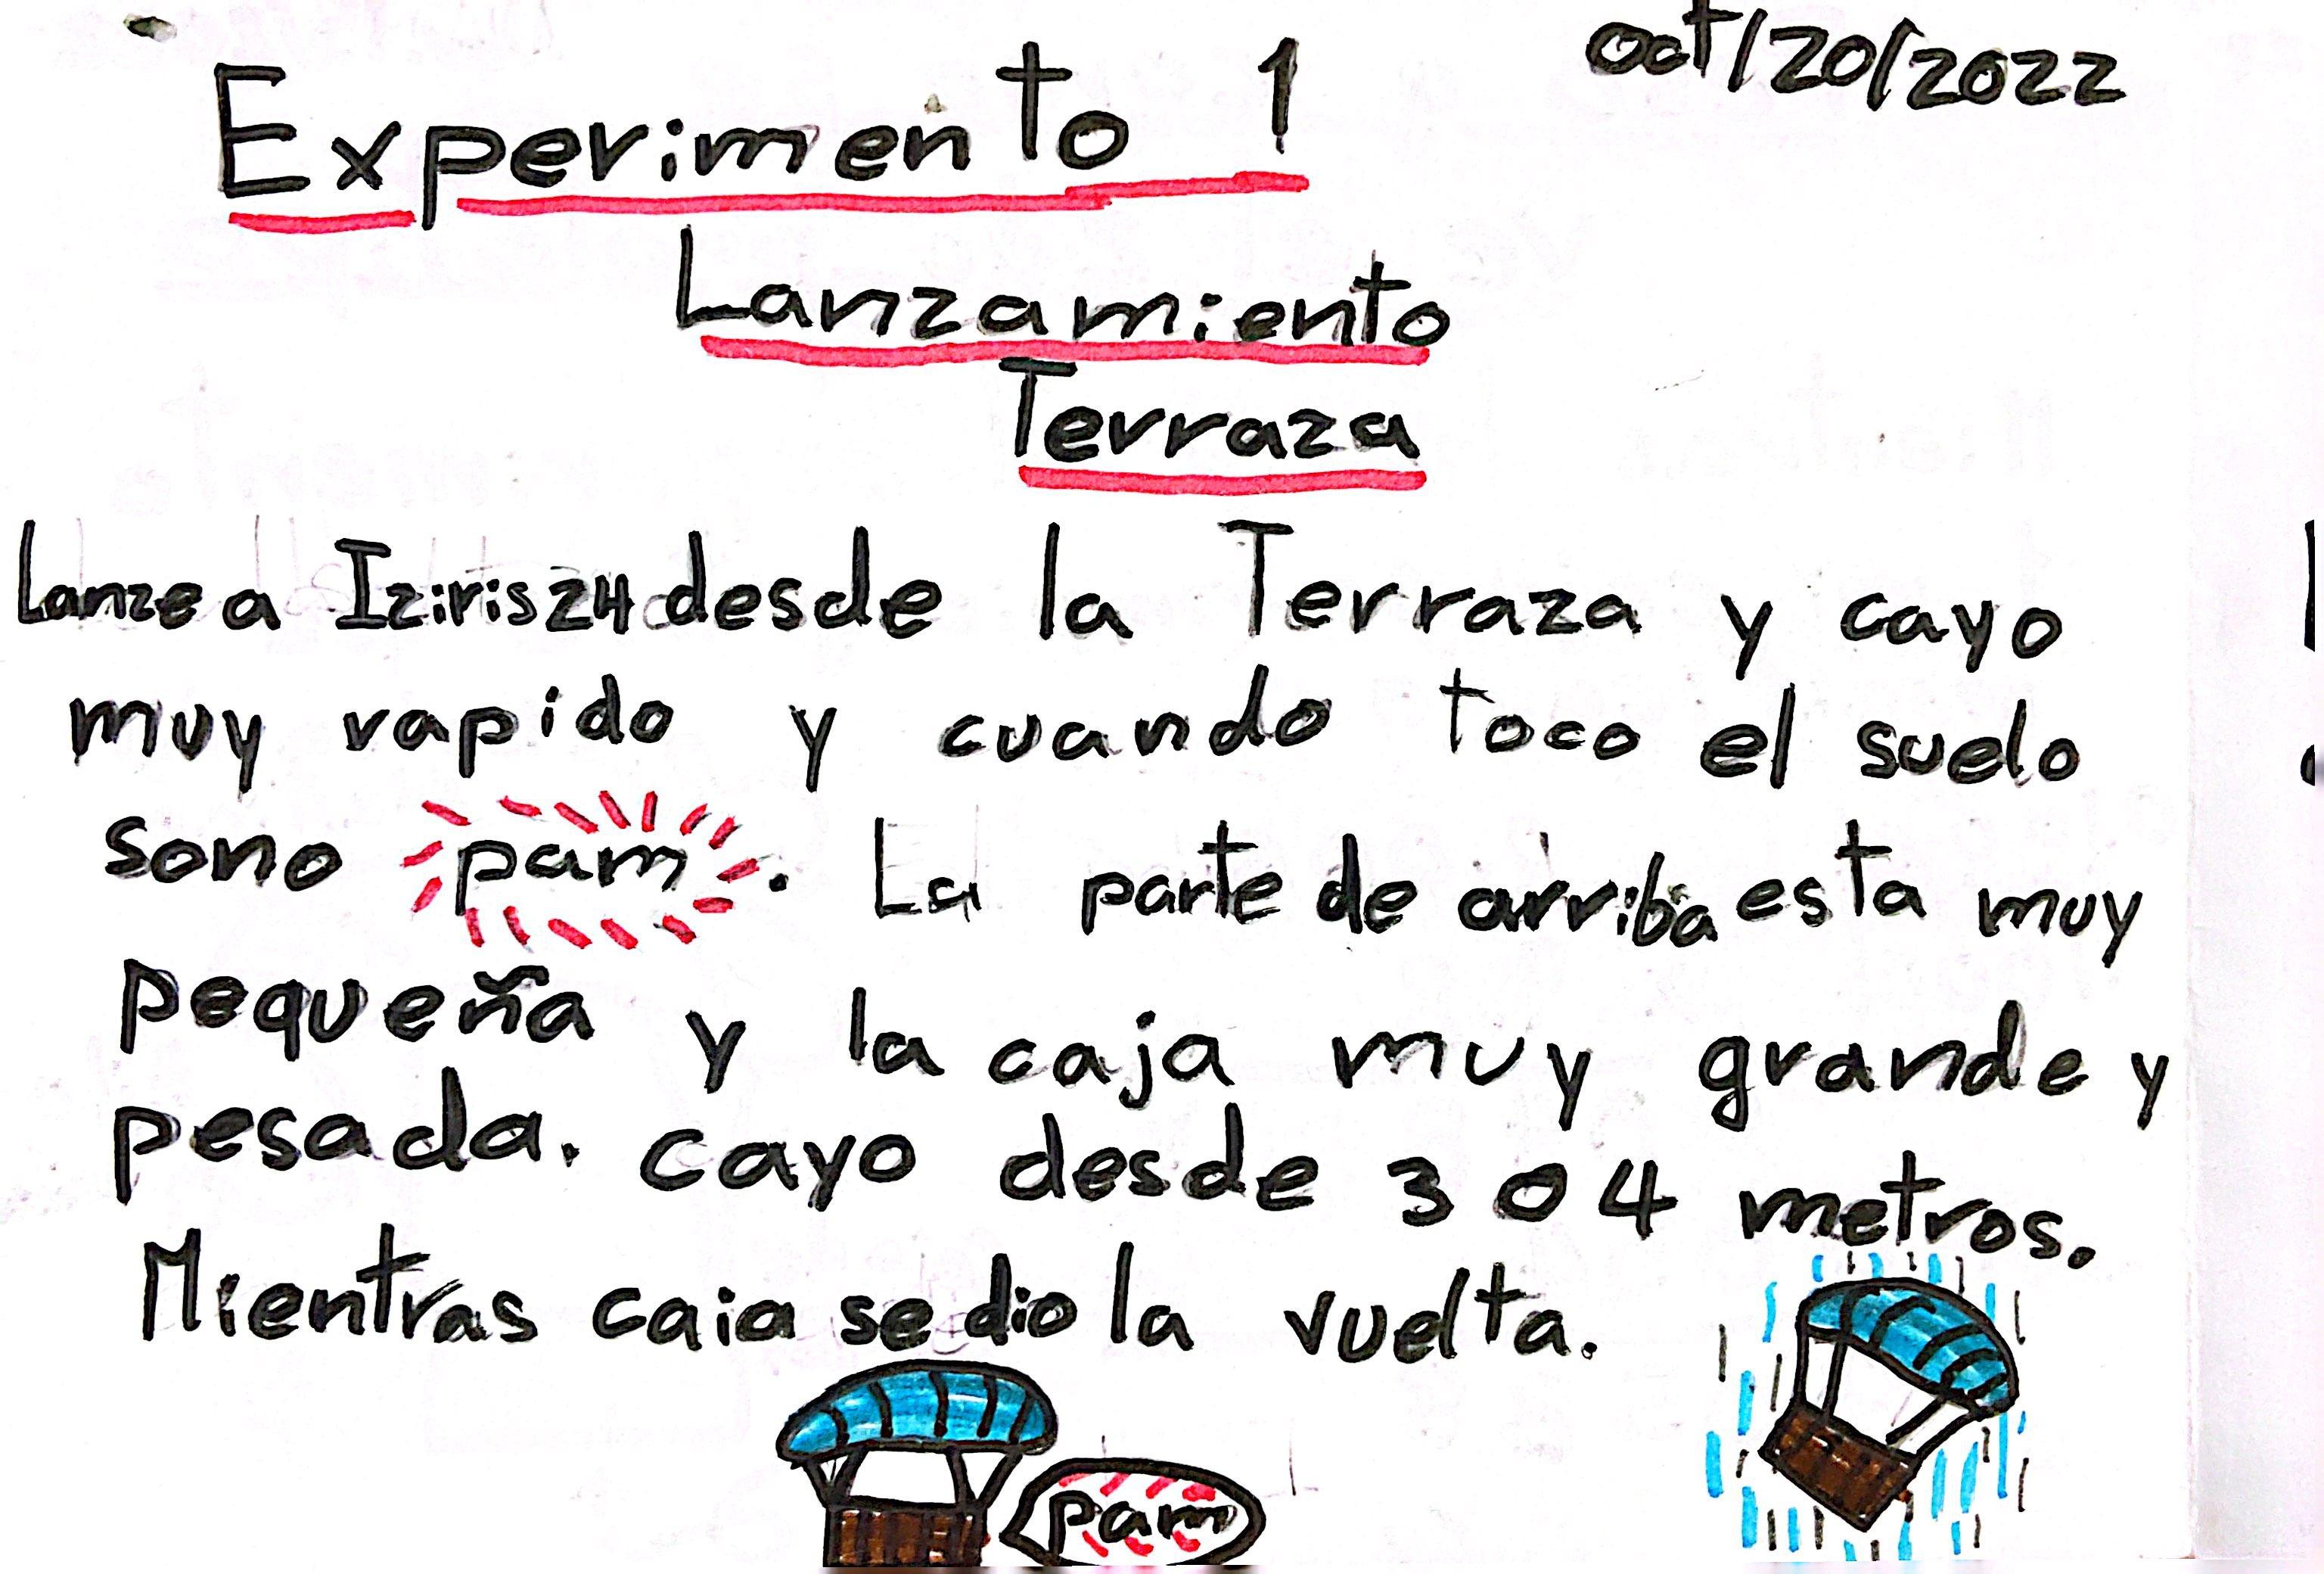 oct/20/2022
Experimento 1
Lanzamiento
Terraza
Lanze a Iziris24 desde la Terraza y cayo
muy rapido y cuando toco el suelo
sono pam. La parte de arriba esta muy
pequeña y la caja muy grande y
pesada. cayo desde 3 o 4 metros.
Mientras caia se dio la vuelta.
pam